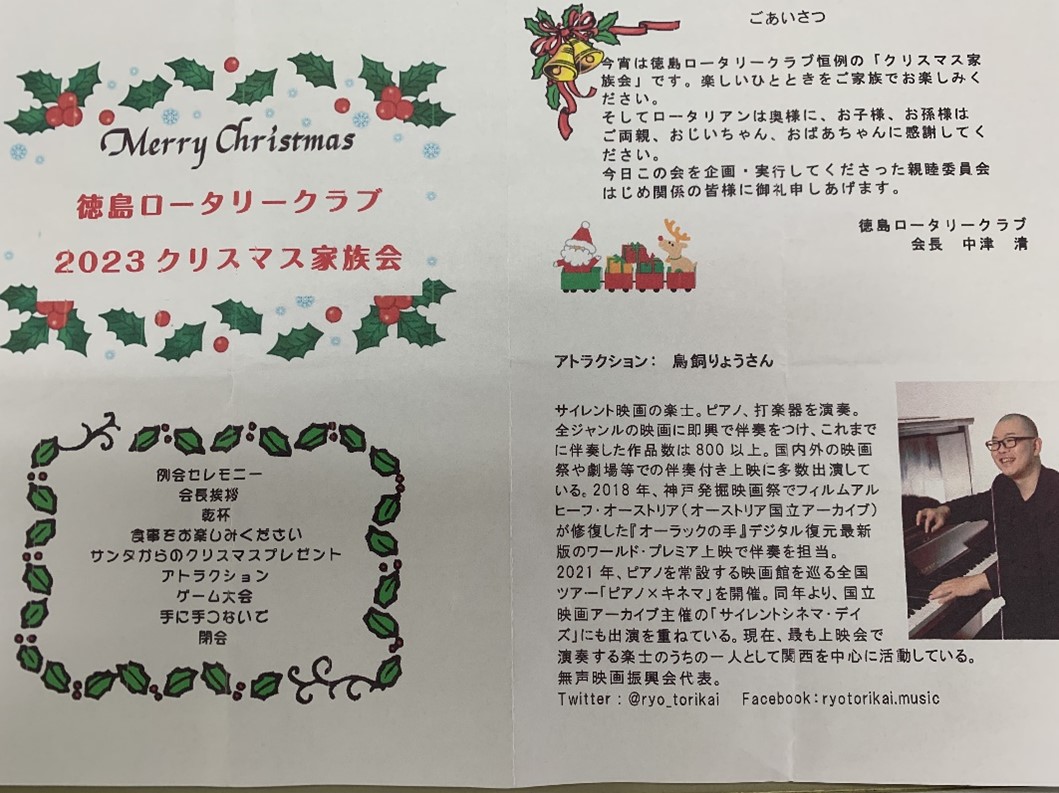 Merry Christmas
徳島ロータリークラブ
2023クリスマス家族会
例会セレモニー
会長挨拶
乾杯
食事をお楽しみください
サンタからのクリスマスプレゼント
アトラクション
ゲーム大会
手に手つないで
閉会
ごあいさつ
今宵は徳島ロータリークラブ恒例の「クリスマス家
族会」です。楽しいひとときをご家族でお楽しみく
ださい。
そしてロータリアンは奥様に、お子様、お孫様は
ご両親、おじいちゃん、おばあちゃんに感謝してく
ださい。
今日この会を企画・実行してくださった親睦委員会
はじめ関係の皆様に御礼申しあげます。
徳島ロータリークラブ
会長　中津　清
アトラクション：　鳥飼りょうさん
サイレント映画の楽士。ピアノ、打楽器を演奏。
全ジャンルの映画に即興で伴奏をつけ、これまで
に伴奏した作品数は800以上。国内外の映画
祭や劇場等での伴奏付き上映に多数出演して
いる。2018年、神戸発掘映画祭でフィルムアル
ヒーフ・オーストリア(オーストリア国立アーカイブ)
が修復した『オーラックの手』デジタル復元最新
版のワールド・プレミア上映で伴奏を担当。
2021年、ピアノを常設する映画館を巡る全国
ツアー「ピアノ×キネマ」を開催。同年より、国立
映画アーカイブ主催の「サイレントシネマ・デイ
ズ」にも出演を重ねている。現在、最も上映会で
演奏する楽士のうちの一人として関西を中心に活動している。
無声映画振興会代表。
Twitter : @ryo_torikai　Facebook：ryotorikai.music